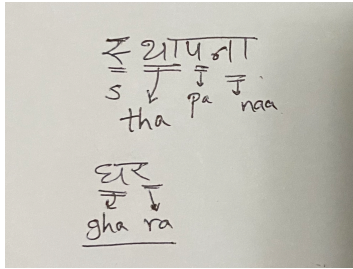 स्थापना
s tha pa naa
घर
gha ra